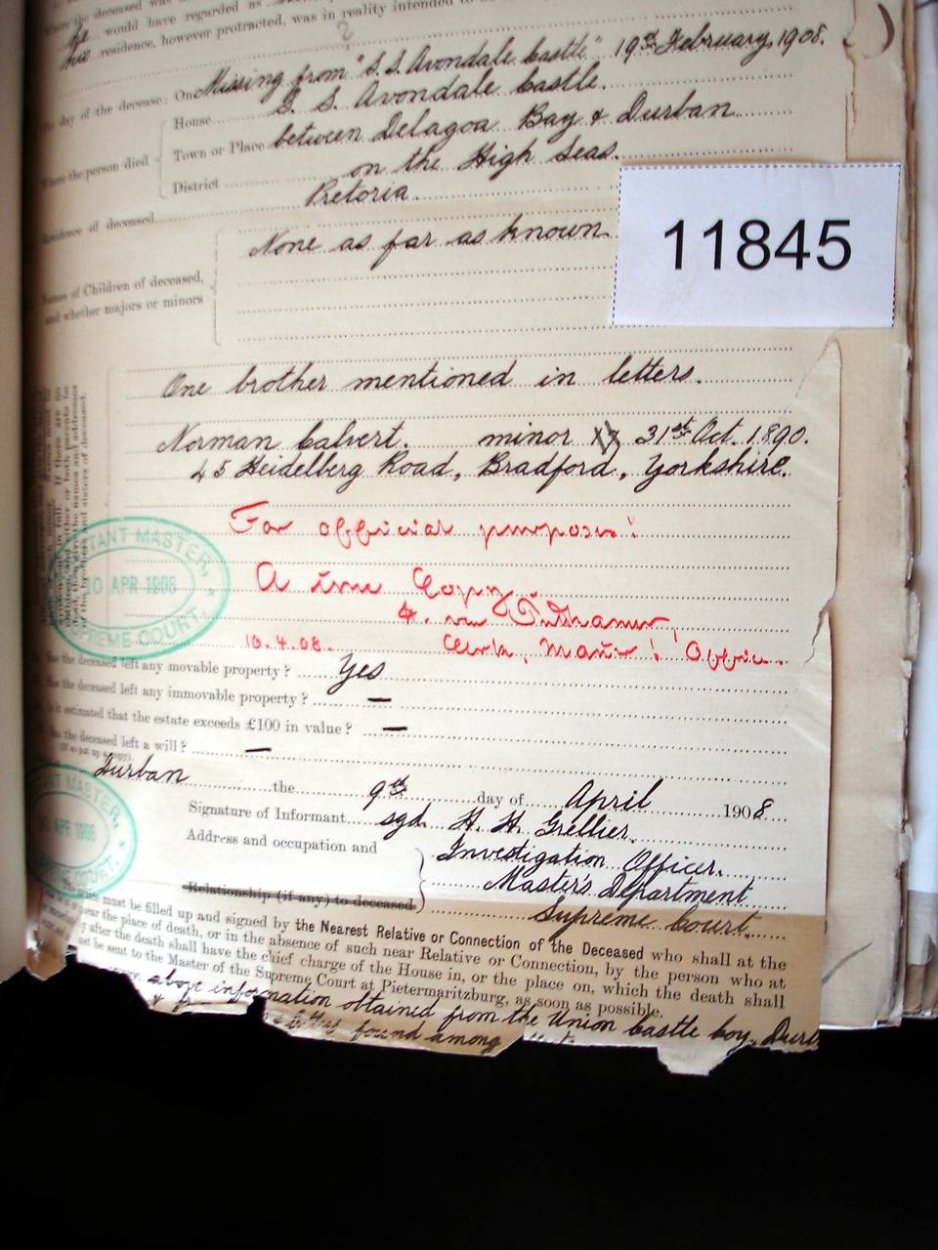 Where the deceased was
he would have regarded as
his residence, however protracted, was in reality intended to
?
day of the decease: On Missing from "S.S. Avondale Castle" 19th February, 1908.
House S. S. Avondale Castle.
Where the person died
Town or Place between Delagoa Bay & Durban
District on the High Seas.
Residence of deceased Pretoria.
11845
Names of Children of deceased, None as far as known
and whether majors or minors
One brother mentioned in letters.
Norman Calvert. minor 31st Oct. 1890.
45 Heidelberg Road, Bradford, Yorkshire.
For official purposes!
A true Copy
10.4.08. Clerk, Office.
TANT MASTER,
10 APR 1908
SUPREME COURT.
Has the deceased left any movable property? Yes
Has the deceased left any immovable property? —
Is it estimated that the estate exceeds £100 in value? —
Has the deceased left a will? —
Durban the 9th day of April 1908
Signature of Informant sgd. H. H. Grellier.
Address and occupation and Investigation Officer.
Master's Department
Relationship (if any) to deceased
Supreme Court.
TANT MASTER,
APR 1908
ME COURT.
must be filled up and signed by the Nearest Relative or Connection of the Deceased who shall at the
near the place of death, or in the absence of such near Relative or Connection, by the person who at
y after the death shall have the chief charge of the House in, or the place on, which the death shall
be sent to the Master of the Supreme Court at Pietermaritzburg, as soon as possible.
above information obtained from the Union Castle Coy, Durb
found among